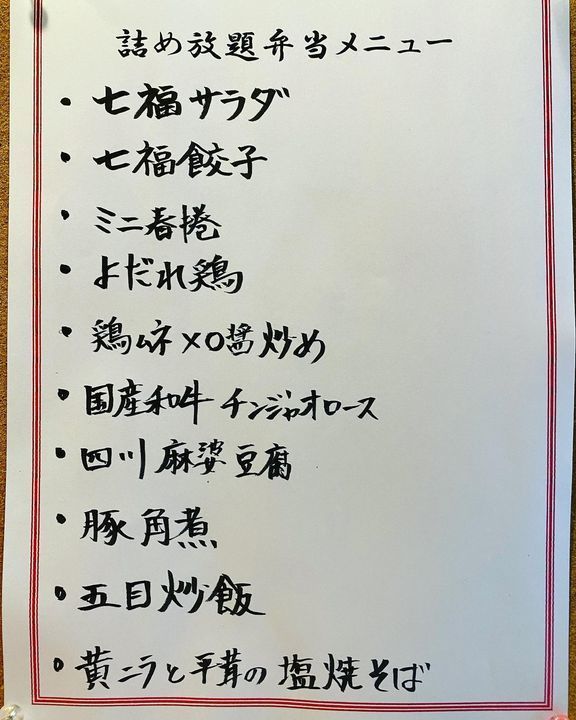 詰め放題弁当メニュー
・七福サラダ
・七福餃子
・ミニ春捲
・よだれ鶏
・鶏ムネXO醤炒め
・国産和牛チンジャオロース
・四川麻婆豆腐
・豚角煮
・五目炒飯
・黄ニラと平茸の塩焼そば